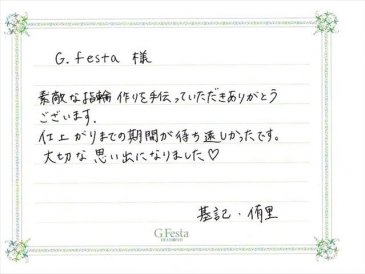 G.festa 様
素敵な指輪作りを手伝っていただきありがとう
ございます.
仕上がりまでの期間が待ち遠しかったです。
大切な思い出になりました♡
基記・侑里
G.Festa